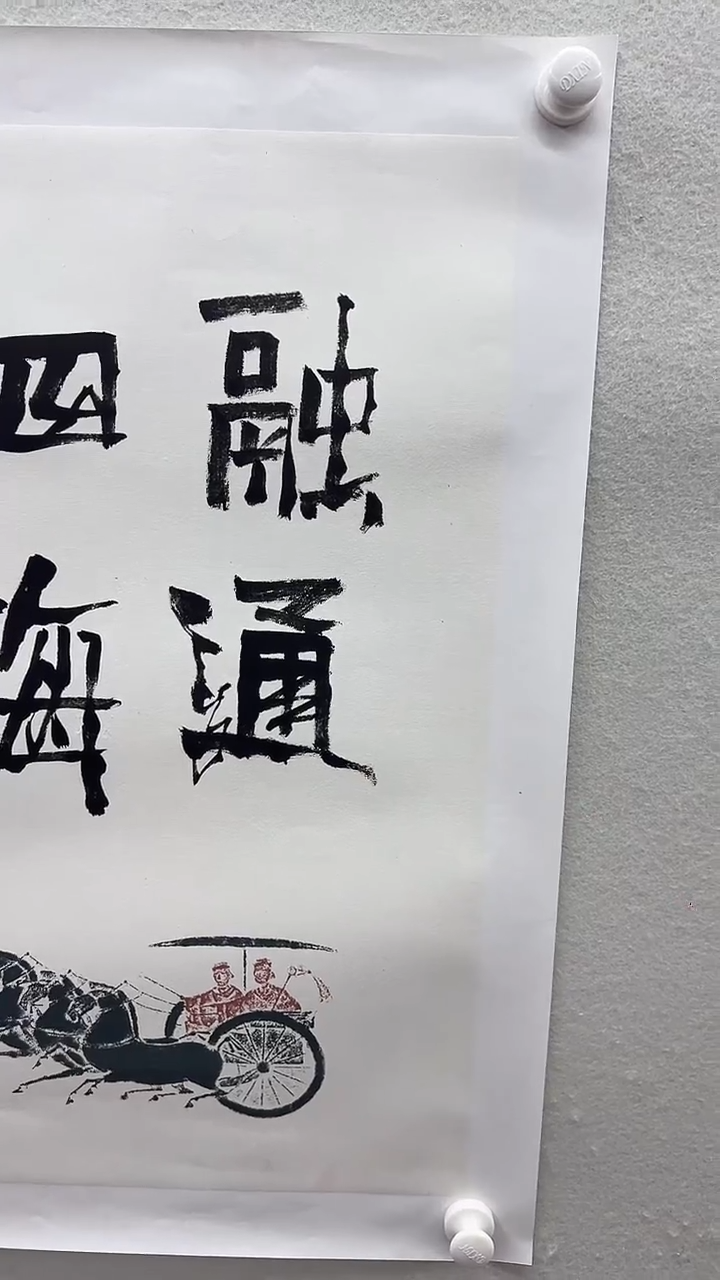 融通
四海